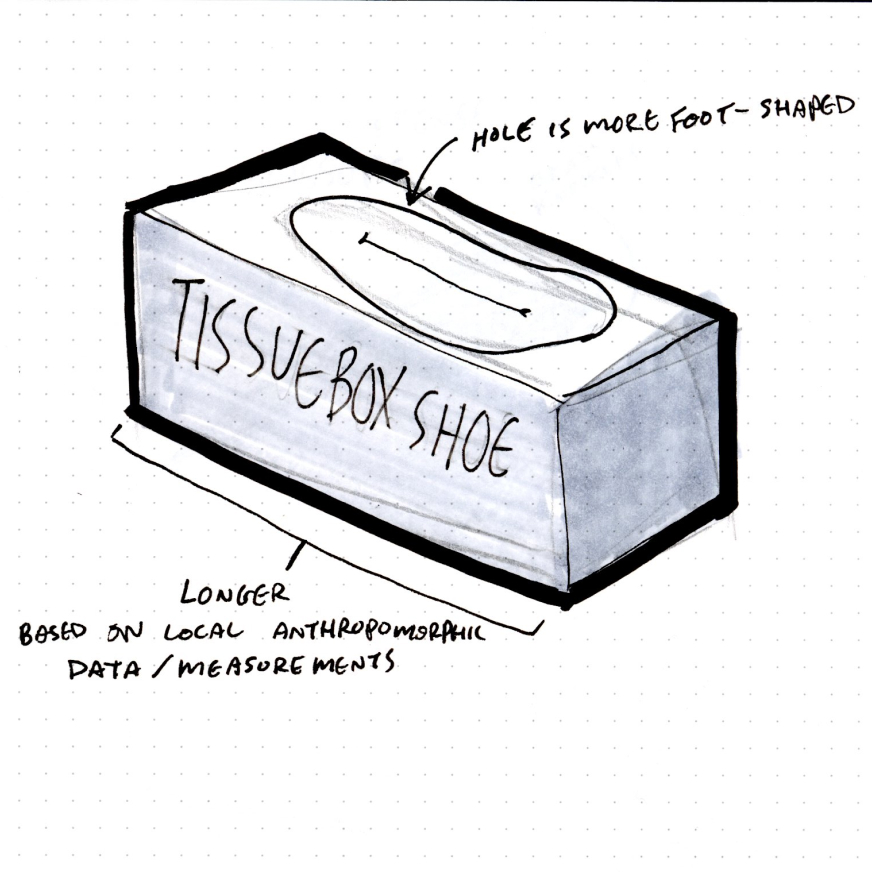 HOLE IS MORE FOOT-SHAPED
TISSUEBOX SHOE
LONGER
BASED ON LOCAL ANTHROPOMORPHIC
DATA/MEASUREMENTS